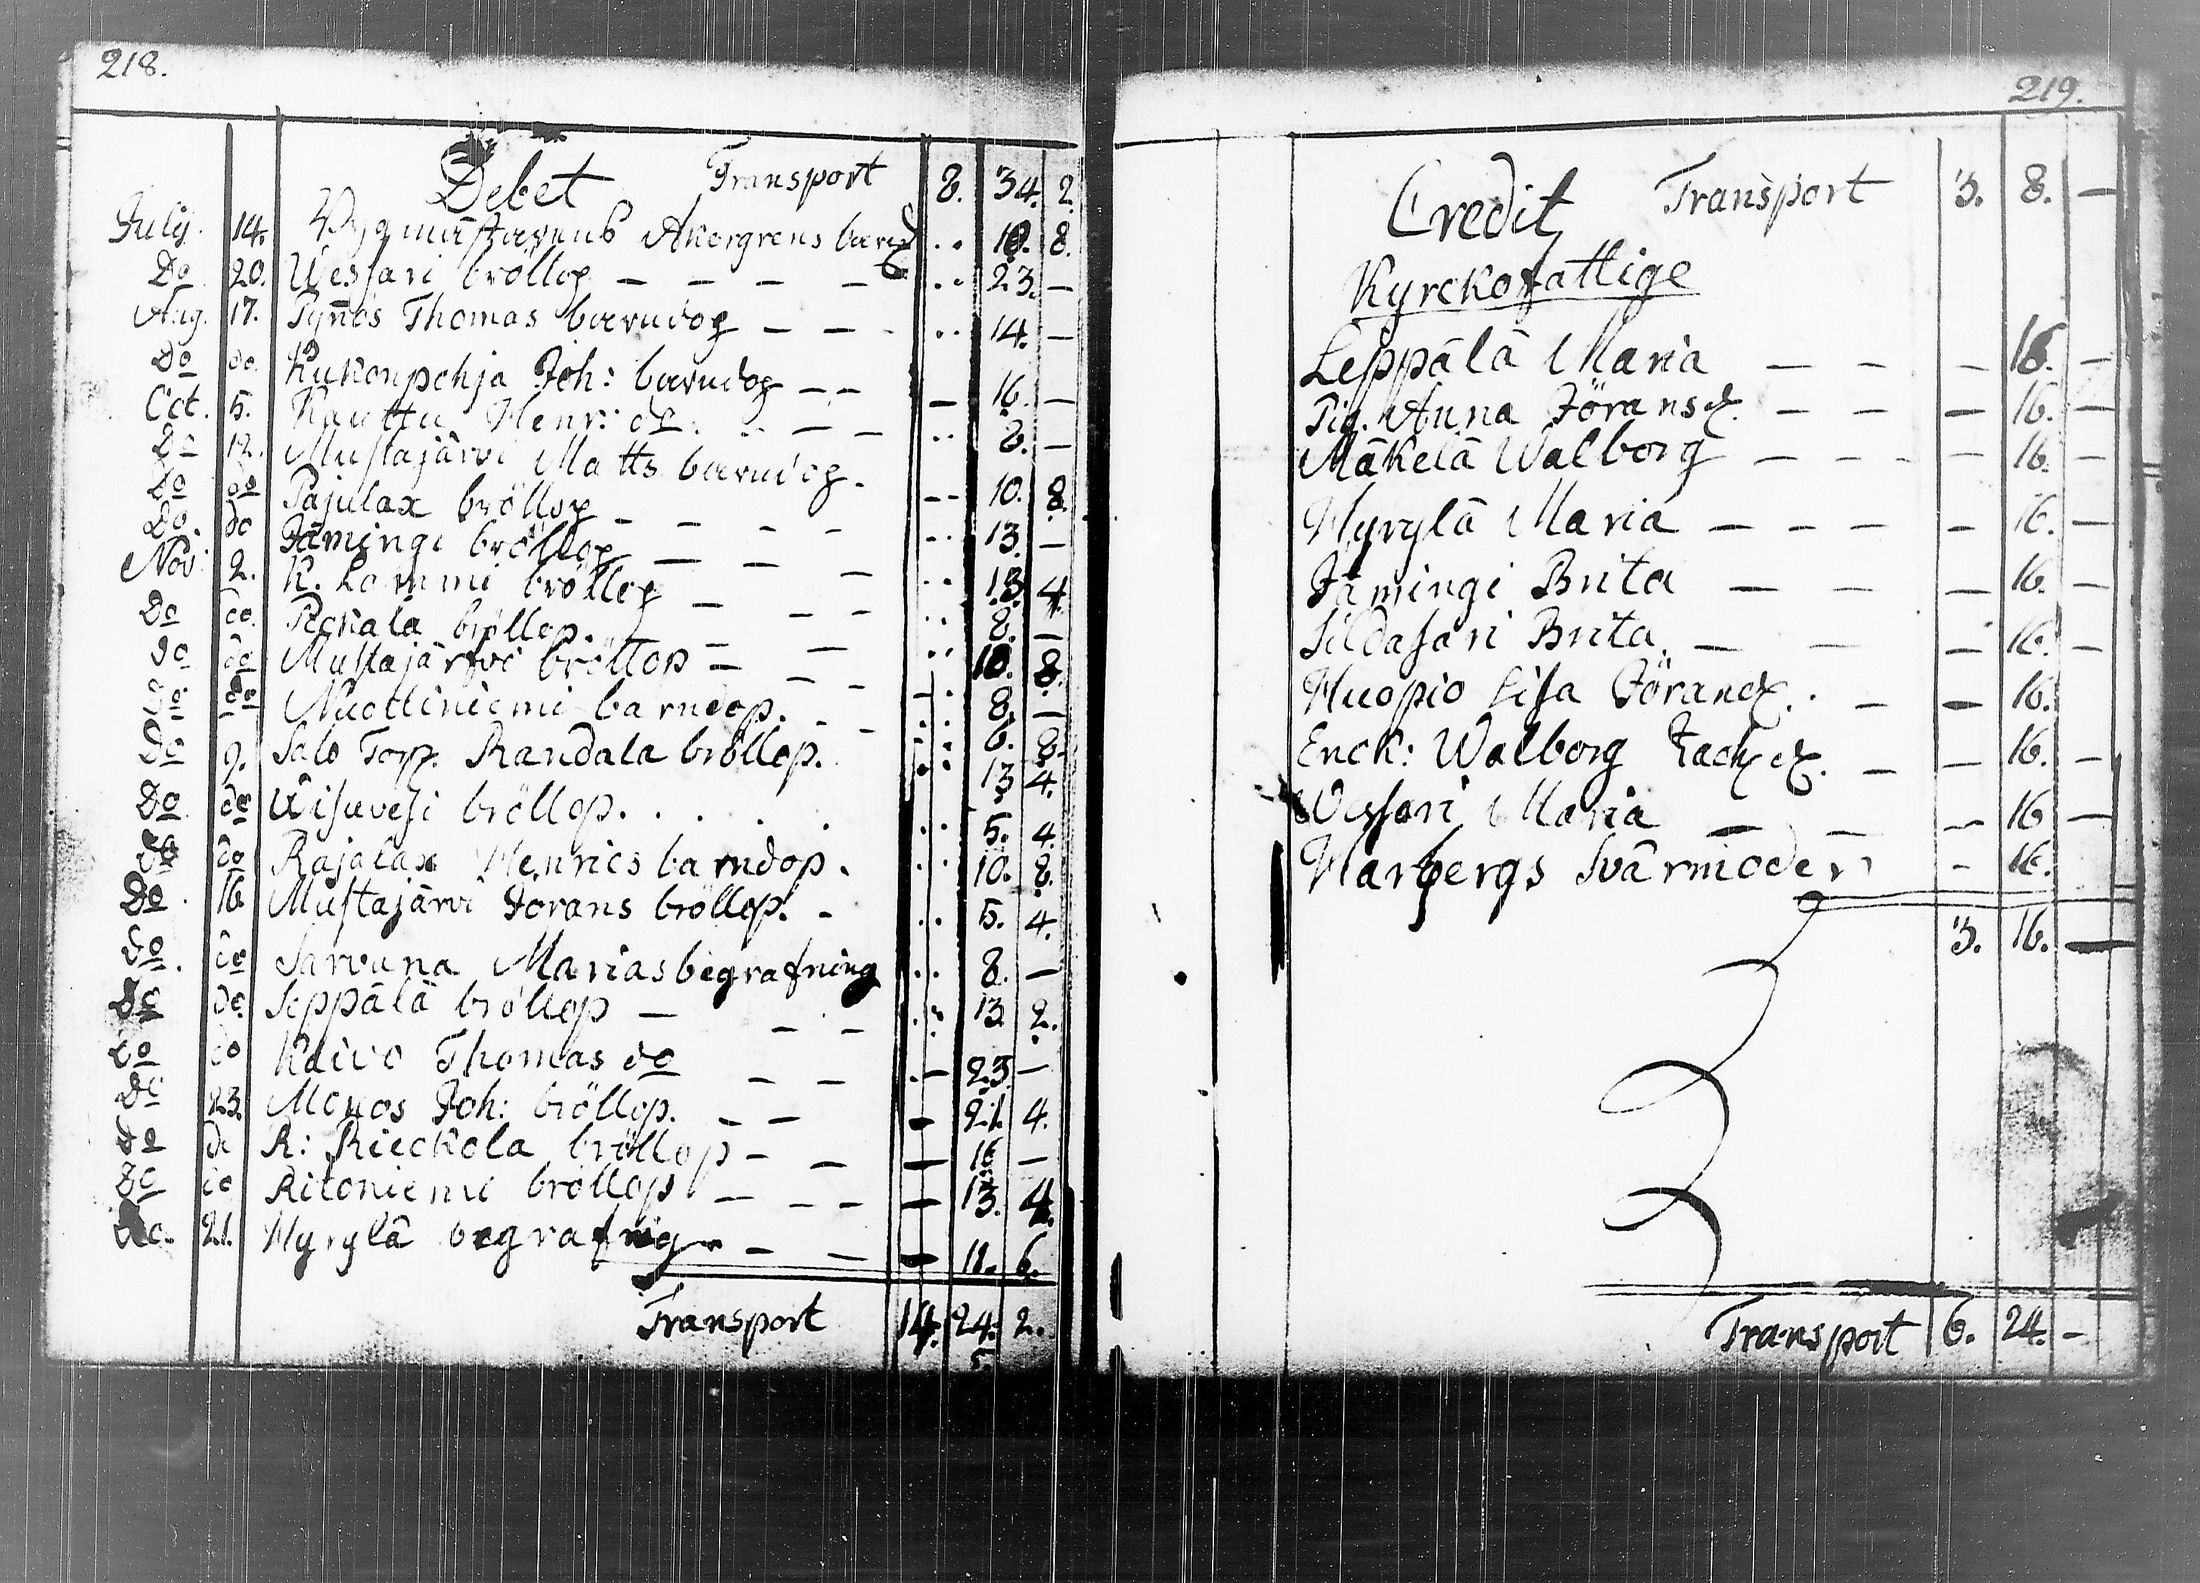 218.
Debet Transport 8. 34. 2.
July. 14. Bygmästarens Akergrens barnd .. 10. 8.
Do 20. Wessari bröllop — — — — .. 23. —
Aug. 17. Pynnös Thomas barndop — — - .. 14. —
Do do. Kukonpohja Joh: barndop — — — 16. —
Oct. 5. Kauttu Henr: do. .. — — .. 8. —
Do 12. Mustajärvi Matts barndop. -- 10. 8.
Do do Pajulax bröllop — — — — .. 13. —
Do. do Jämingi bröllop — — — — .. 13. 4.
Nov: 2. K. Lammi bröllop — — — .. 8. —
Do do. Pickala bröllop. — — — .. 10. 8.
Do do Mustajärfvi bröllop — — — -. 8. —
Do do Nuottiniemi barndop. - - .. 6. 8.
Do 9. Salo Torp. Randala bröllop. .. 13 4.
Do do Wisuvesi bröllop. . . . . .. 5. 4.
Do do Rajalax Henrics barndop. .. 10. 8.
Do. 16 Mustajärvi Jörans bröllop. - .. 5. 4.
Do. do Sarvana Marias begrafning .. 8. —
Do do Seppälä bröllop — - - .. 13. 2.
Do do Kaivo Thomas do — — .— 23. —
Do 23. Monos Joh: bröllop. — — - 21. 4.
Do do R: Rieckola bröllop — — — 16 —
Do do Ritoniemi bröllop — — — — 13. 4.
Do. 21. Hyrylä begrafnig — — — 11. 6.
Transport 14. 24. 2.
5.
219.
Credit Transport 3. 8. —
Kyrckofattige
Leppälä Maria — — — 16. —
Pig. Anna Jöransd. — — — 16. —
Mäkelä Walborg — — - - — 16. —
Hyrylä Maria — — — — 16. —
Jämingi Brita — — — 16. —
Sildasari Brita. — — — 16. —
Huopio Lisa Jörand. . — — 16.
Enck: Walborg Zach d. — — 16. —
Wessari Maria — — — 16 —
Warbergs Svärmoder - 16.
3. 16. —
Transport 6. 24. —